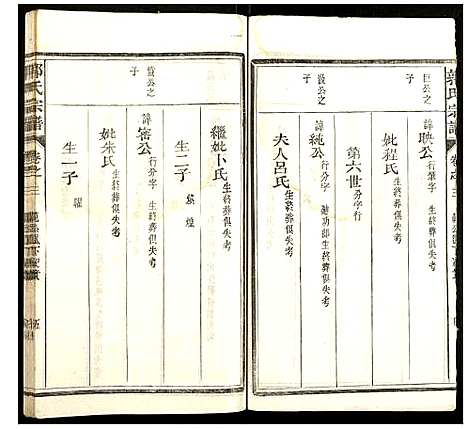 郭氏宗譜
卷之三
巨公之
子
諱映公 行肇字 生終葬俱失考
妣程氏 生終葬俱失考
第六世 分字行
毀公之
子
諱純公 行分字 迪功郎生終葬俱失考
夫人呂氏 生終葬俱失考
繼妣卜氏 生終葬俱失考
生二子 煌
公之
子
諱密公 行分字 生終葬俱失考
妣朱氏 生終葬俱失考
生一子
郭氏宗譜
卷之三